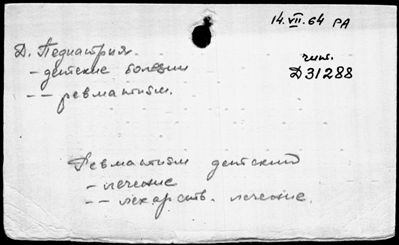 14.VII.64 РА
Д. Педиатрия.
чит.
- детские болезни
Д31288
- - ревматизм.
Ревматизм детский
- лечение
- - лекарств. лечение.